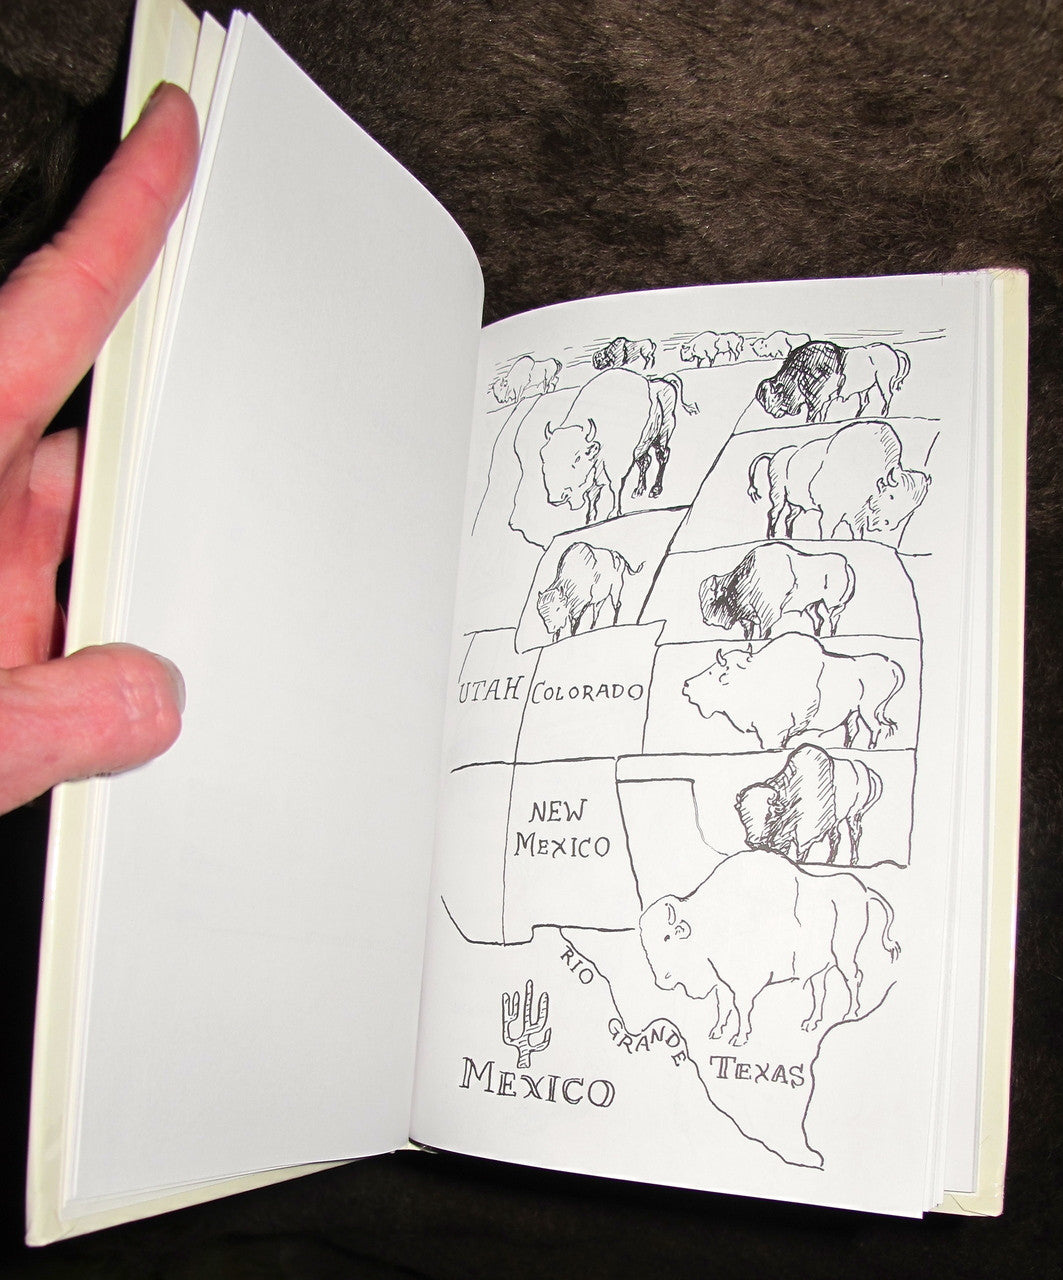 UTAH
COLORADO
NEW
MEXICO
RIO
GRANDE
TEXAS
MEXICO